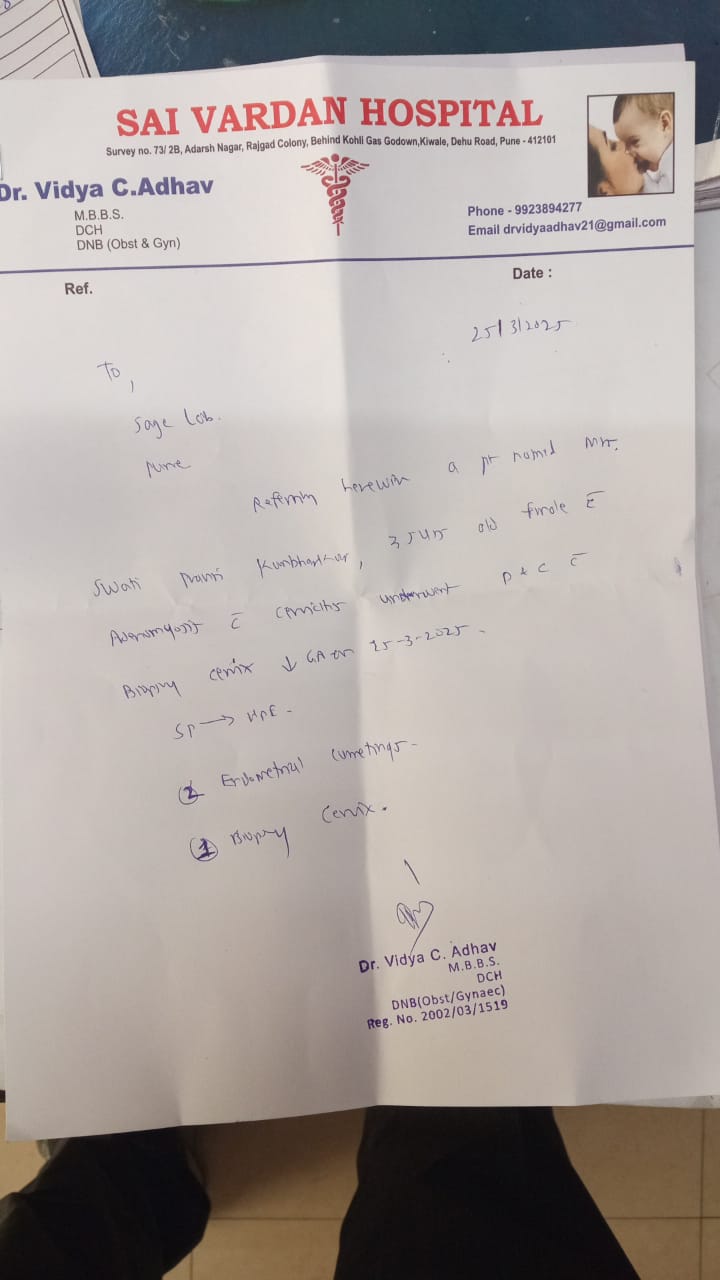 SAI VARDAN HOSPITAL
Survey no. 73/ 2B, Adarsh Nagar, Rajgad Colony, Behind Kohli Gas Godown,Kiwale, Dehu Road, Pune - 412101
Dr. Vidya C.Adhav
M.B.B.S.
DCH
DNB (Obst & Gyn)
Phone - 9923894277
Email drvidyaadhav21@gmail.com
Ref.
Date :
25/3/2025
To,
Sage Lab.
Pune
Referring herewith a pt named
Swati old female c̄
Adenomyosis c̄ cervicitis underwent D & C c̄
Biopsy cervix ↓ GA on 25-3-2025.
SP → HPE -
② Endometrial curretings -
① Biopsy Cervix.
Dr. Vidya C. Adhav
M.B.B.S.
DCH
DNB(Obst/Gynaec)
Reg. No. 2002/03/1519